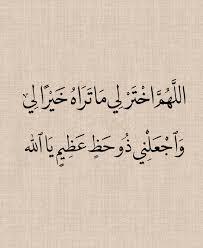 اللَّهُمَّ اخْتَرْ لِي مَا تَرَاهُ خَيْرًا لِي
وَاَجْعَلْنِي ذُو حَظٍ عَظِيمٍ يَا الله